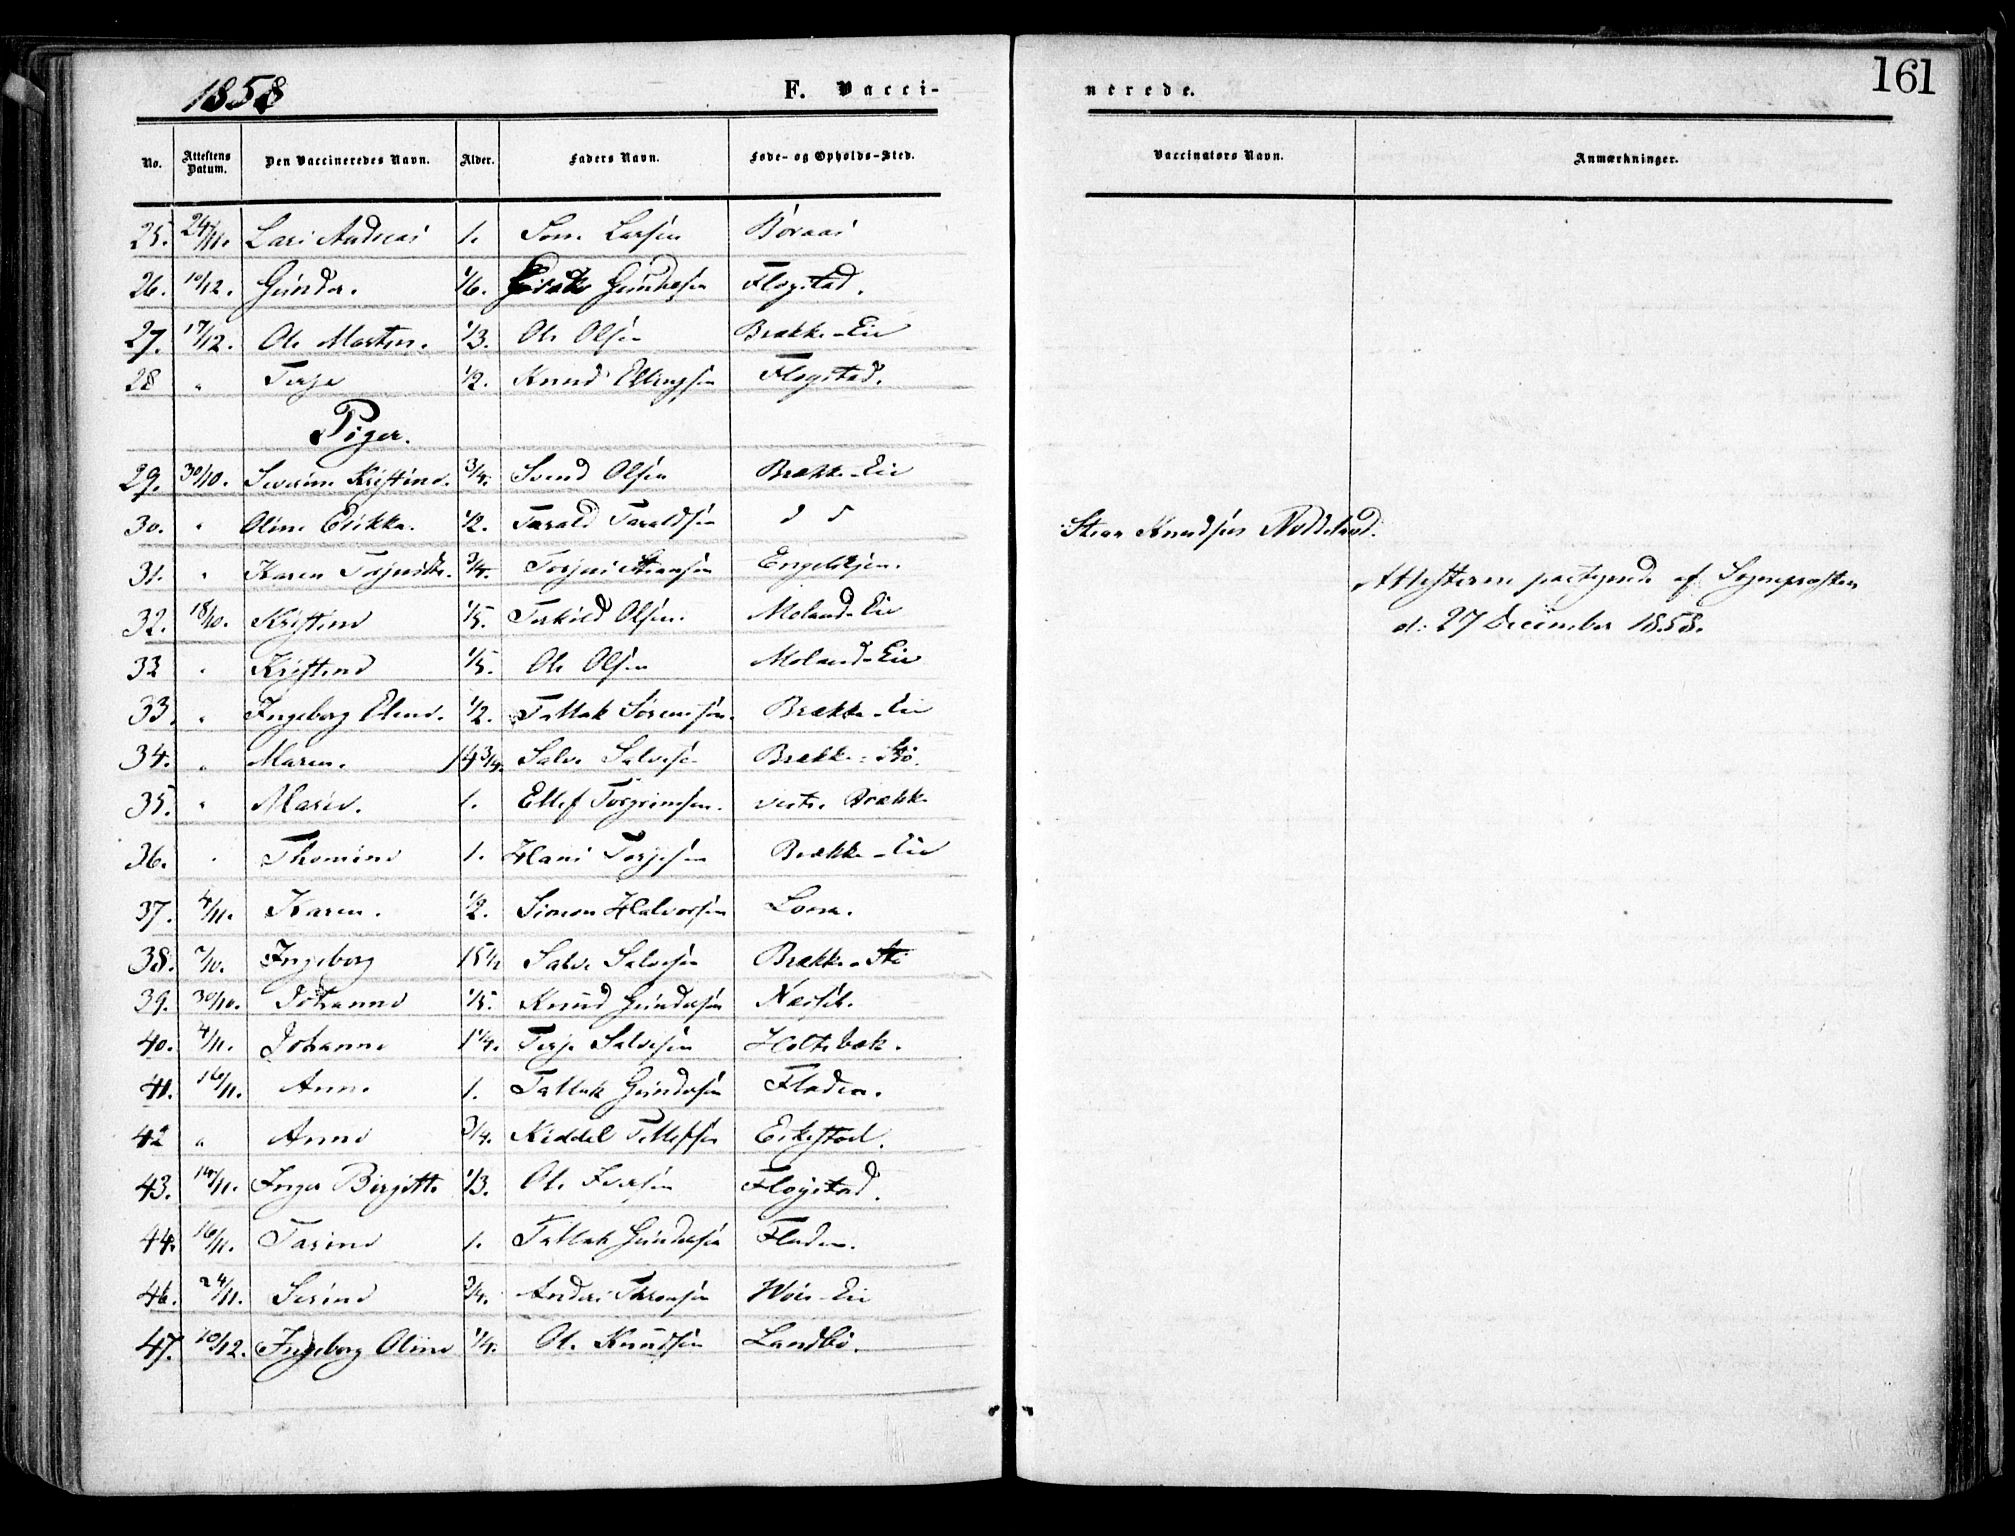 1858
F. Vacci-
nerede.
161
No. Attestens Datum. Den Vaccineredes Navn. Alder. Faders Navn. Føde- og Opholds-Sted. Vaccinators Navn. Anmærkninger.
25. 24/11. Lars Andreas 1. Larsen Boraas
26. 10/12. Gunder. 1/6. Gundersen Flogstad.
27. 17/12. Ole Marten. 1/3. Ole Olsen Brække-Eie
28 " Terje 1/2. Knud Ellingsen Flogstad.
Piger.
29. 30/10. Severine Kristine. 3/4. Svend Olsen Brække-Eie
30. " Oline 1/2. Tarald Taraldsen d d
Stian Knudsen Noddeland.
31. " Karen 3/4. Torjus Stiansen Engelskjen.
Attesterne paategnede af Sognepræsten
32. 18/10. Kristine 1/5. Terkild Olsen. Moland-Eie
d. 27 December 1858.
33 " Kristine 1/5. Ole Olsen Moland-Eie
33. " Ingeborg Oline. 1/2. Tallak Sørensen. Brække-Eie
34. " Maren. 14 3/4. Salve Salvesen Brække-
35. " Marie. 1. Ellef Torgrimsen. vestre Brække
36. " Thomine 1. Hans Torjesen Brække-Eie
37. 4/11. Karen. 1/2. Simon Halvorsen
38. 7/10. Ingeborg 15 1/2 Salve Salvesen Brække-
39. 30/10. Johanne 1/5. Knud Gundersen Næset.
40. 4/11. Johanne 1 1/4. Terje Salvesen Holtebæk.
41. 16/11. Anne 1. Tallak Gundersen Fladen.
42 " Anne 3/4. Niddel Tellefsen Eikestad.
43. 16/11. Inger Birgitte 1/3. Ole Iversen Flogstad.
44. 16/11. Tarine 1. Tallak Gundersen Fladen.
46. 24/11. Serine 3/4. Anders Thronsen Eie
47. 10/12. Ingeborg Oline 1/4. Ole Knudsen Landbø.